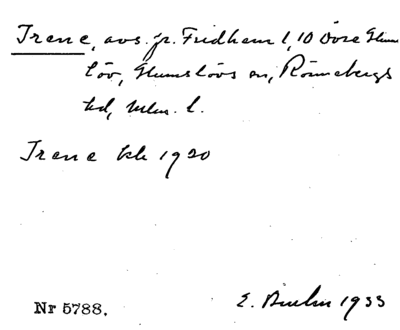 Irene, avs. fr. Fridhem 1, 10 Övre Glum
löv, Glumslövs sn, Rönnebergs
hd, Mlm. l.
Irene kh 1920
Nr 5788.
E. 1933